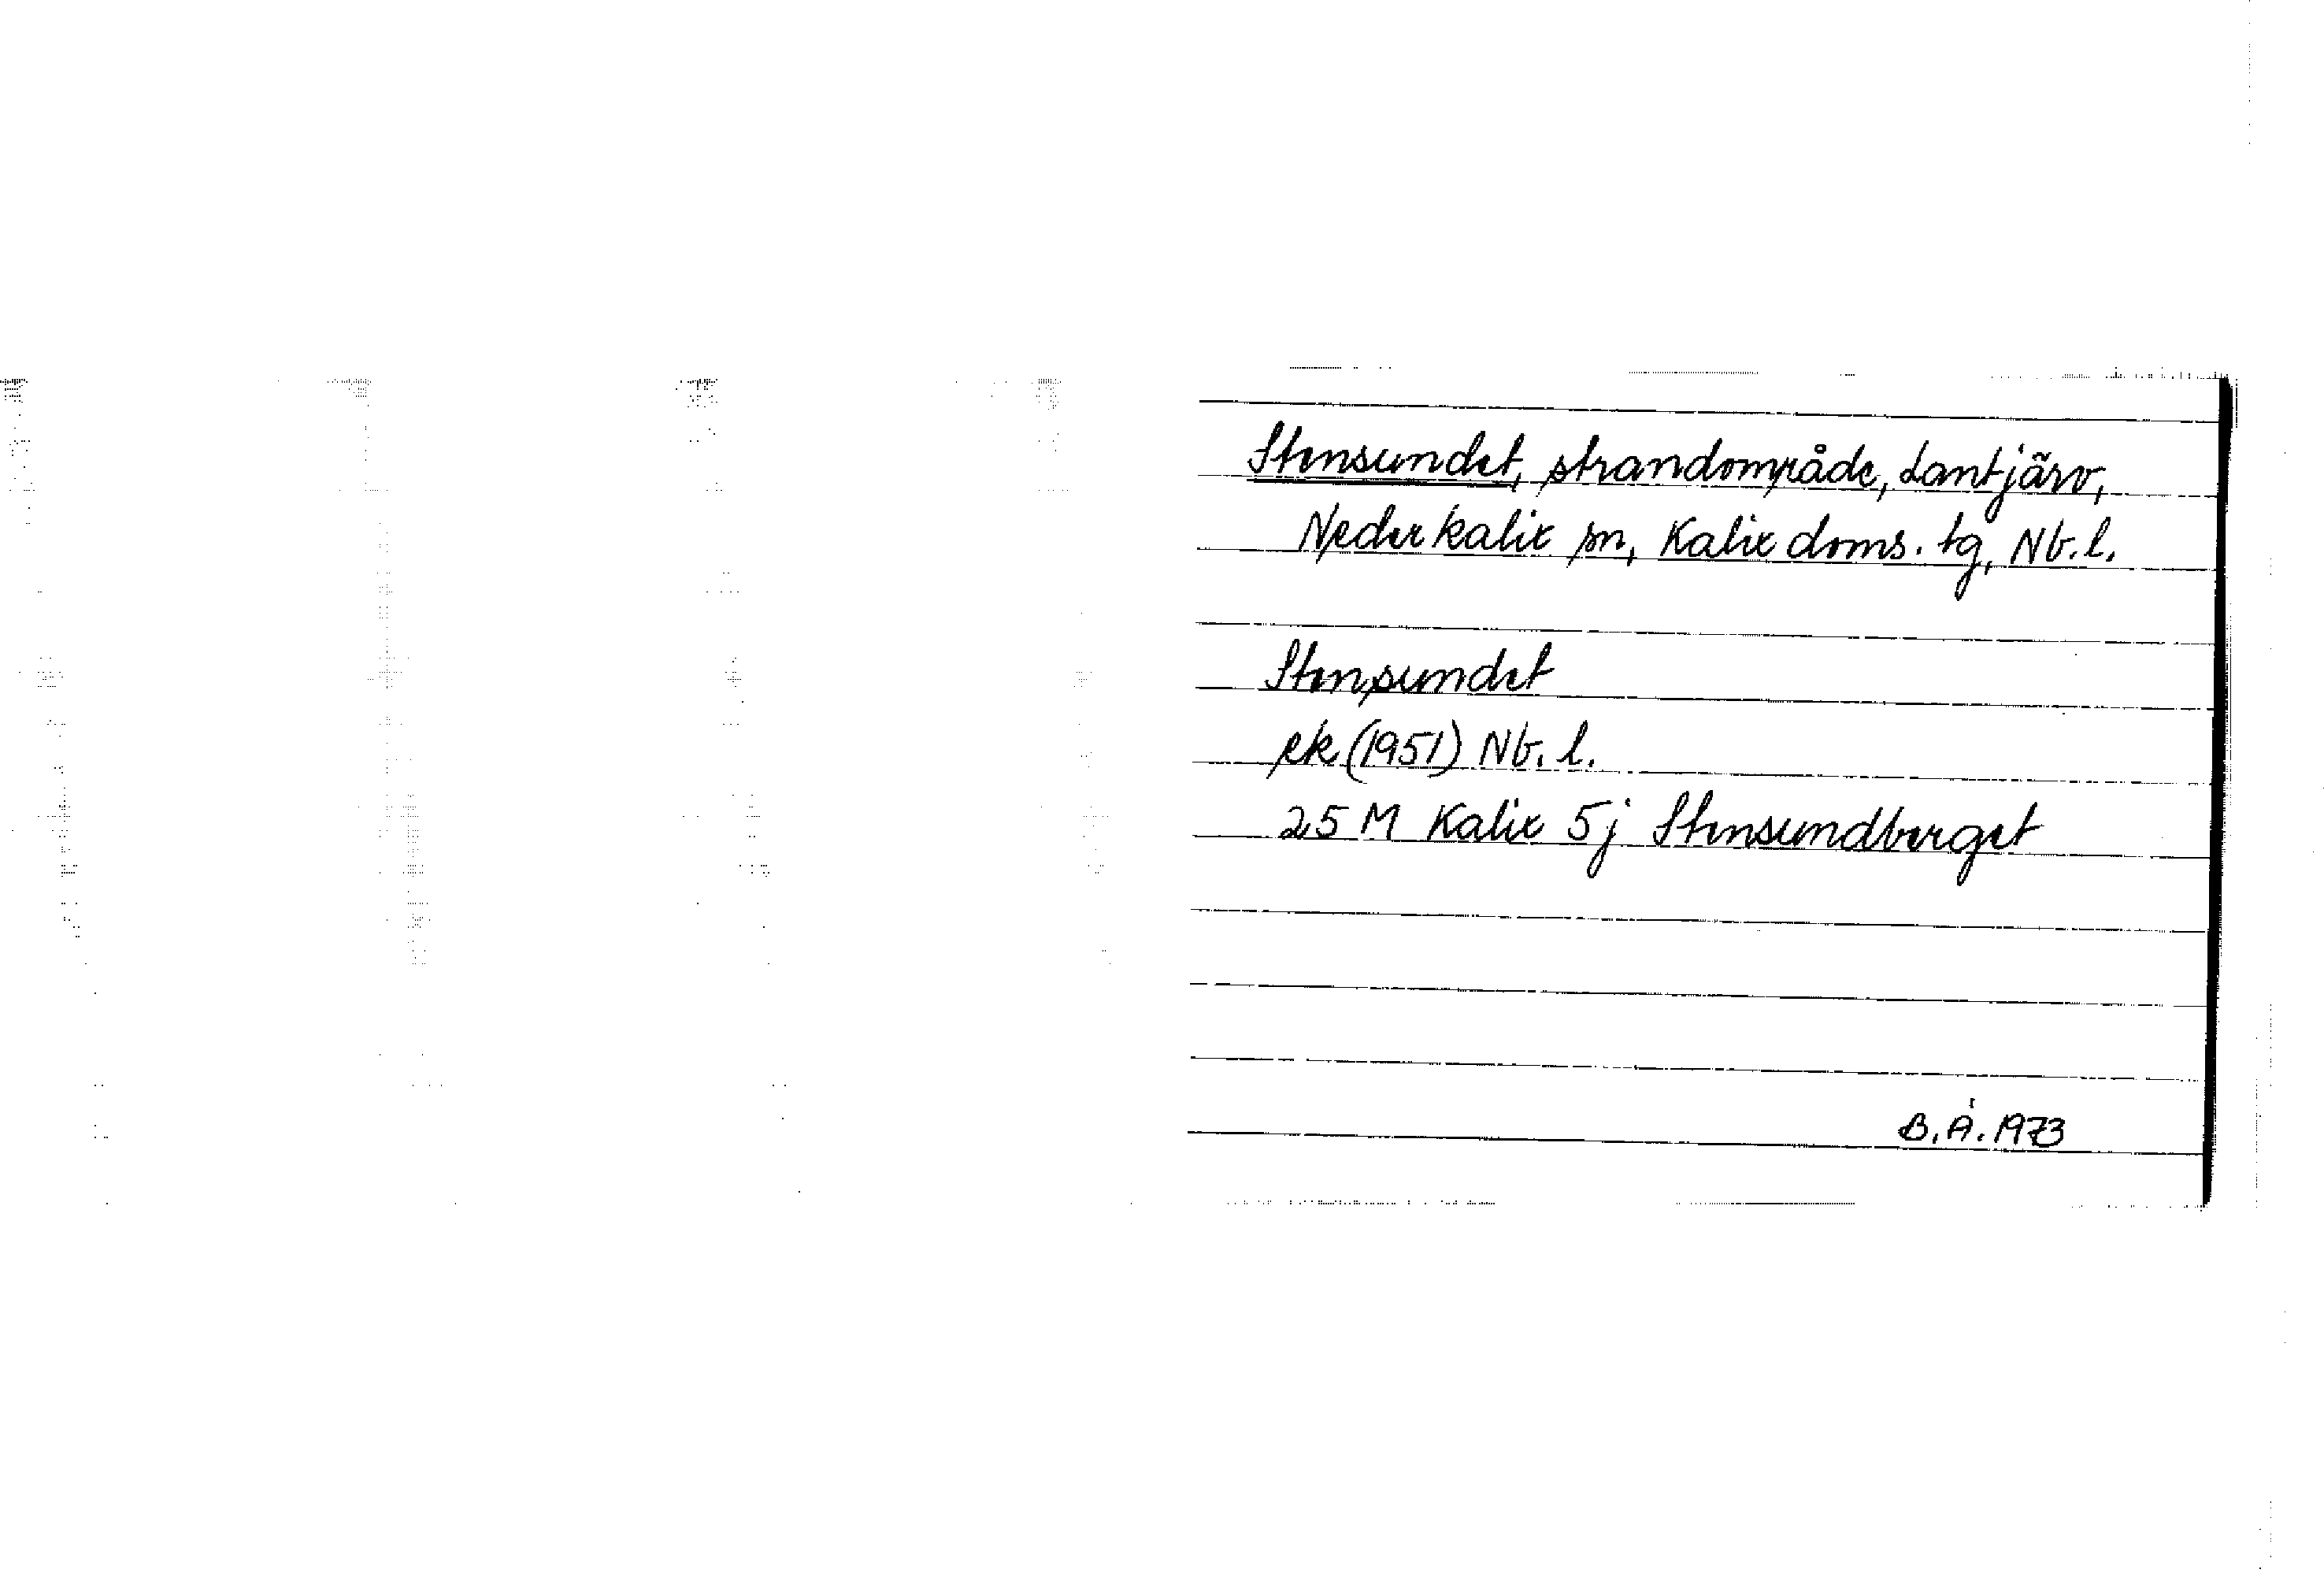 Stensundet, strandområde, Lantjärv,
Nederkalix sn, Kalix doms. tg, Nb. l.
Stensundet
ek (1951) Nb. l.
25 M Kalix 5j Stensundberget
B. Å. 1973